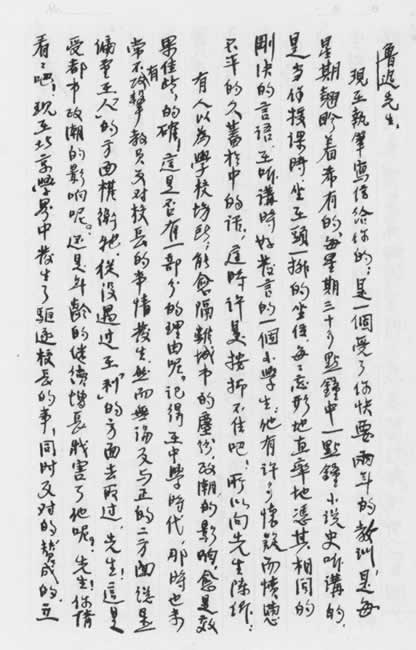 魯迅先生
现在执筆寫信給你的，是一個受了你快要兩年的教訓，是每
星期翹盼着希有的，每星期三十多點鐘中一點鐘小說史听講的，
是当你授課時，坐在頭一排的坐位，每々忘形地直率地憑其相同的
剛決的言語，在听講時好發言的一個小學生。他有許多怀疑而憤懣
不平的久蓄於中的話，這時許是按抑不住吧！所以向先生陳訴：
有人以為學校場所，能愈隔離城市的塵紛，政潮的影响，愈是效
果佳些，的確！這是否有一部分的理由呢。记得在中學時代，那時也未
常不有攻擊教員反对校長的事情發生，然而無論反与正的二方面總是
偏重在「人」的方面權衡他，從没遇過在「利」的方面去取过。先生！這是
受都市政潮的影响呢。还是年齡的继续增長戕害了他呢？先生！你請
看々吧，现在北京學界中發生了驱逐校長的事，同時反对的，赞成的，立